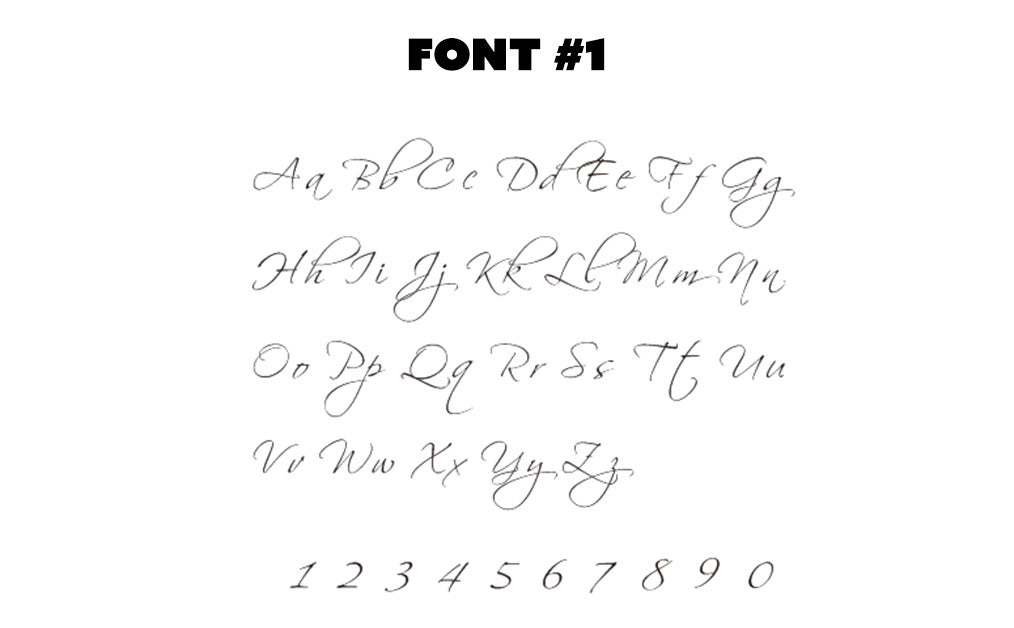 FONT #1
Aa Bb Cc Dd Ee Ff Gg
Hh Ii Jj Kk Ll Mm Nn
Oo Pp Qq Rr Ss Tt Uu
Vv Ww Xx Yy Zz
1 2 3 4 5 6 7 8 9 0